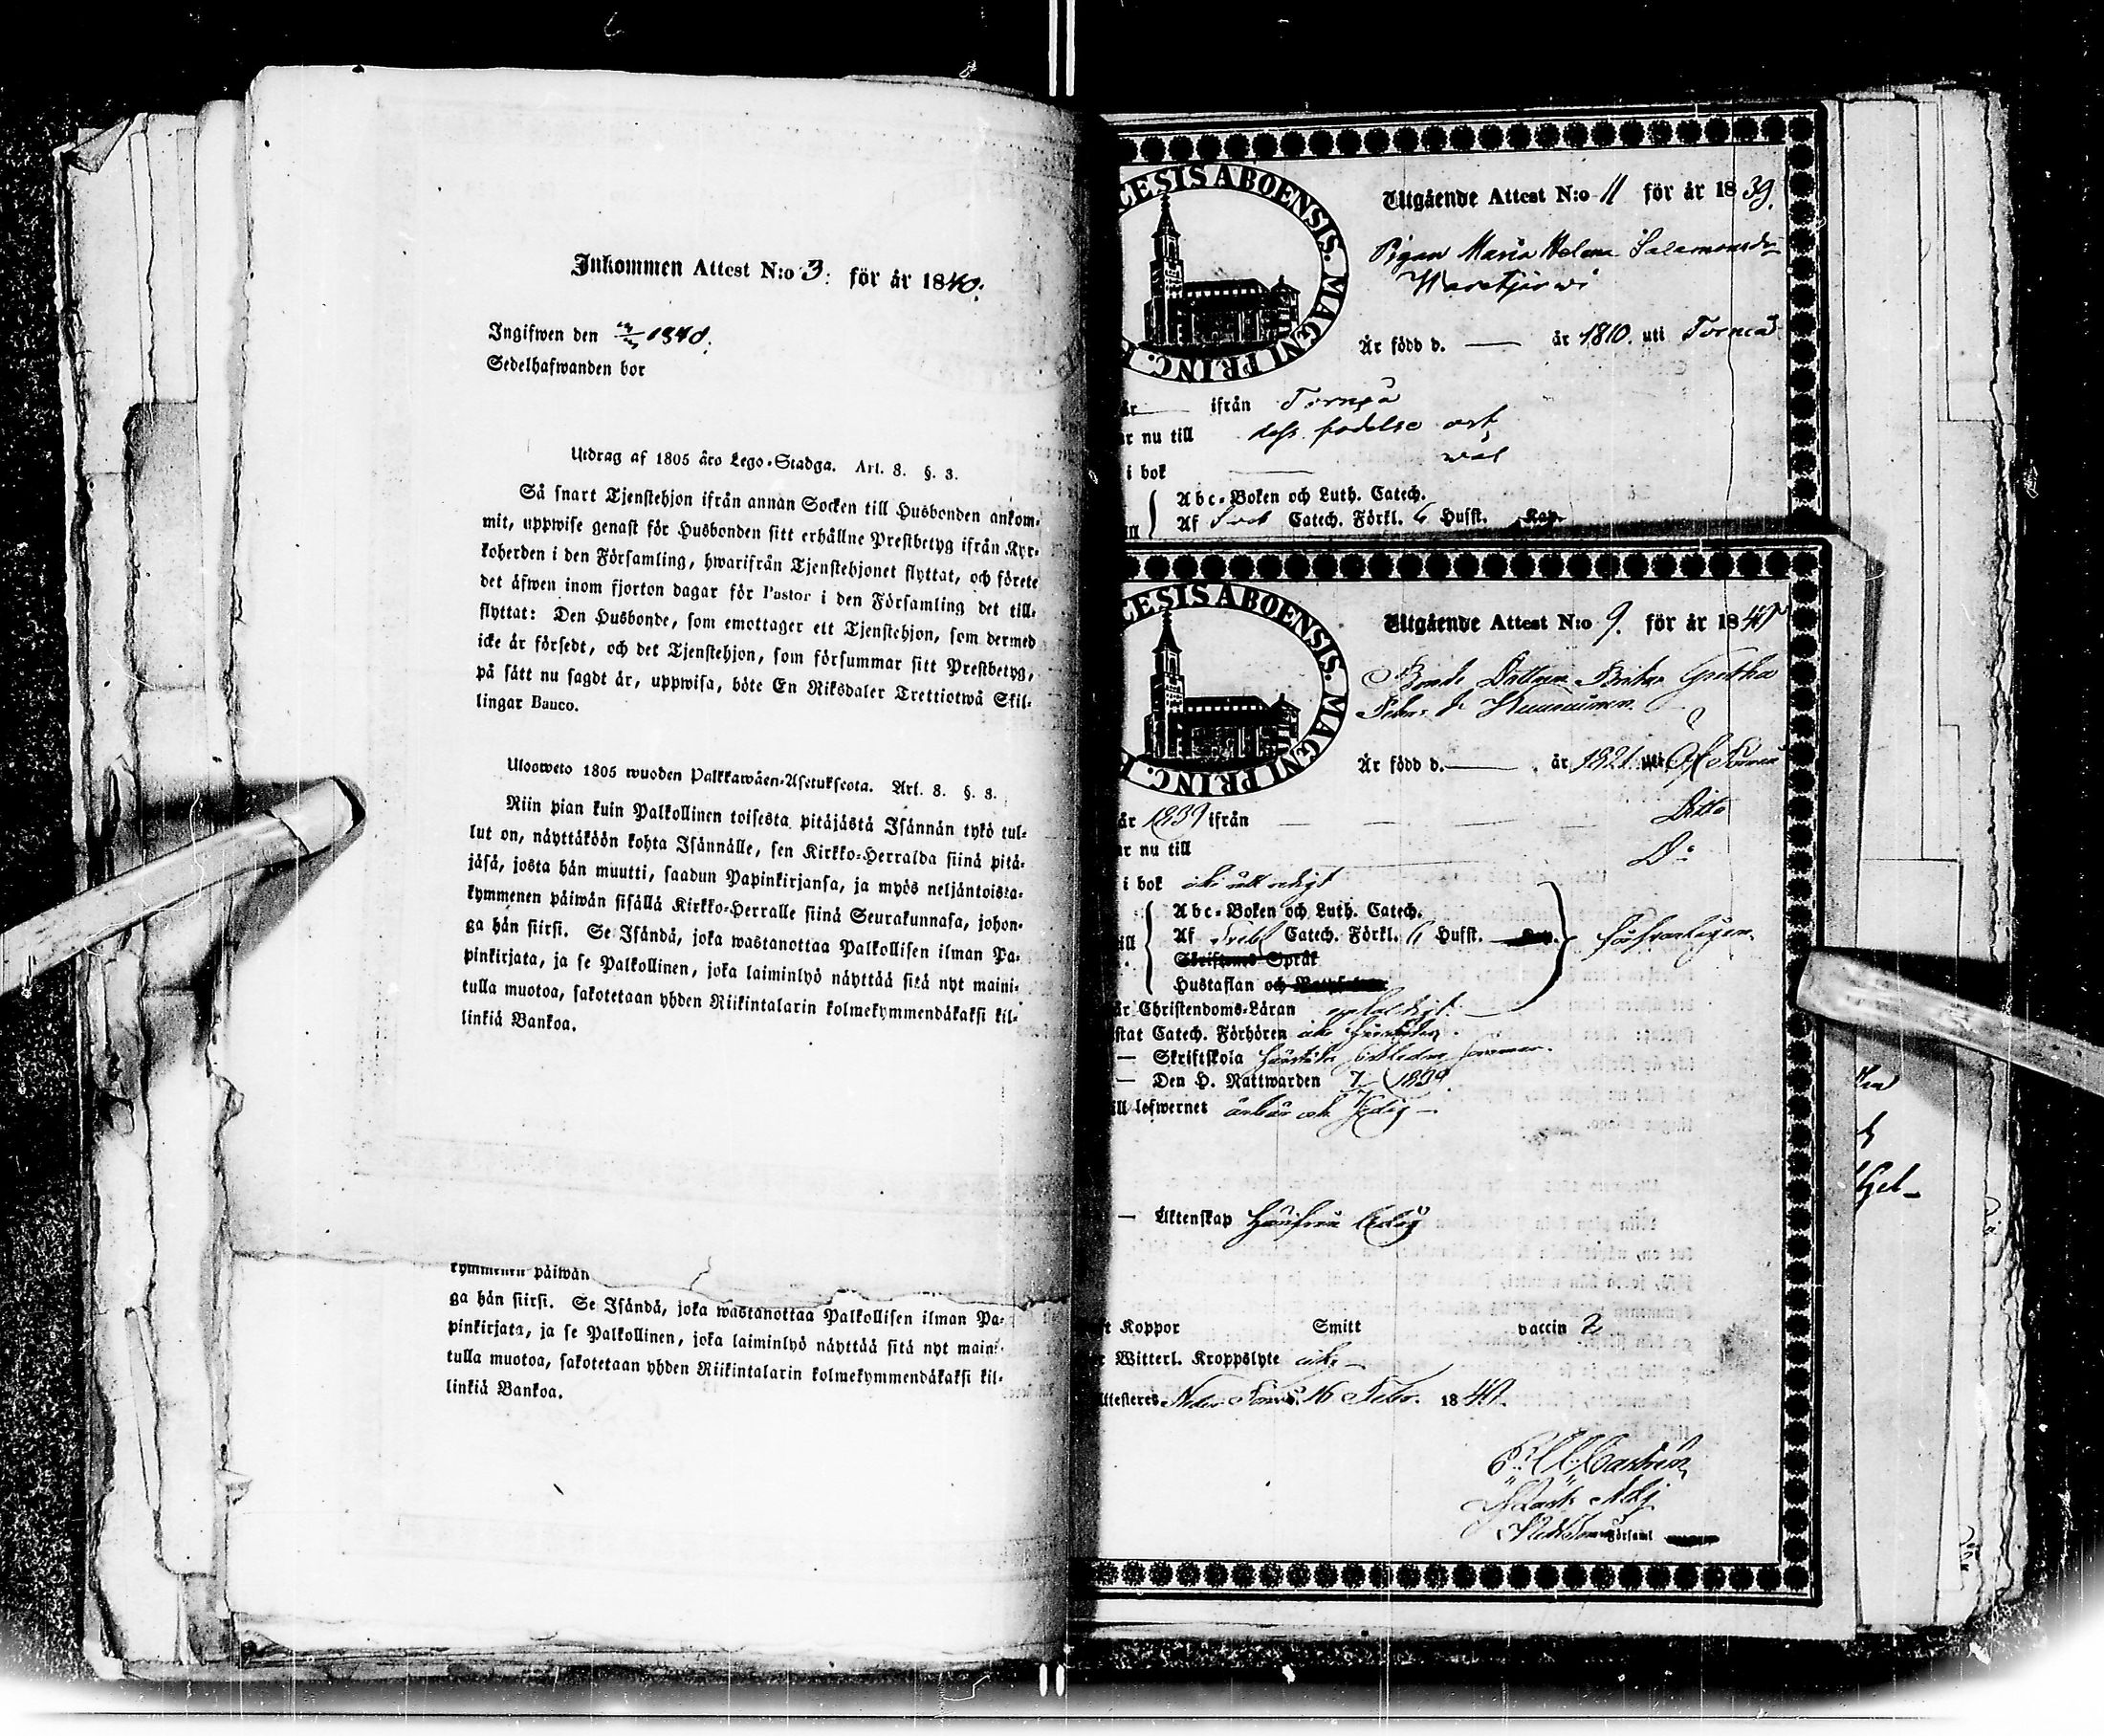 Inkommen Attest N:o 3. för år 1840.
Ingifwen den 1840.
Sedelhafwanden bor
Utdrag af 1805 åro Lego-Stadga. Art. 8. §. 3.
Så snart Tjenstehjon ifrån annan Socken till Husbonden ankom-
mit, uppwise genast för Husbonden sitt erhållne Prestbetyg ifrån Kyr-
koherden i den Församling, hwarifrån Tjenstehjonet flyttat, och förete
det äfwen inom fjorton dagar för Pastor i den Församling det till-
flyttat: Den Husbonde, som emottager ett Tjenstehjon, som dermed
icke är försedt, och det Tjenstehjon, som försummar sitt Prestbetyg,
på sätt nu sagdt är, uppwisa, böte En Riksdaler Trettiotwå Skil-
lingar Bauco.
Uloosweto 1805 wuoden Palkkawäen-Asetuksesta. Art. 8. §. 3.
Niin pian kuin Palkollinen toisesta pitäjästä Isännän tykö tul-
lut on, näyttäköön kohta Isännälle, sen Kirkko-Herralda siinä pitä-
jäsä, josta hän muutti, saadun Papinkirjansa, ja myös neljäntoista-
kymmenen päiwän sisällä Kirkko-Herralle siinä Seurakunnasa, johon-
ga hän siirsi. Se Isändä, joka wastanottaa Palkollisen ilman Pa-
pinkirjata, ja se Palkollinen, joka laiminlyö näyttää sitä nyt maini-
tulla muotoa, sakotetaan yhden Riikintalarin kolmekymmendäkaksi kil-
linkiä Bankoa.
kymmenen päiwän
ga hän siirsi. Se Isändä, joka wastanottaa Palkollisen ilman Pa-
pinkirjata, ja se Palkollinen, joka laiminlyö näyttää sitä nyt maini-
tulla muotoa, sakotetaan yhden Riikintalarin kolmekymmendäkaksi kil-
linkiä Bankoa.
CESIS ABOENSIS. MAGNI PRINC.
Utgående Attest N:o 11 för år 1839.
Pigan Maria Helena Salamonsdr
Är född d. — år 1810. uti Torneå
år — ifrån Torneå
ar nu till dess födelse ort,
i bok — wal
Abc-Boken och Luth. Catech.
Af Catech. Förkl. 6 Hufst. Kap.
CESIS ABOENSIS. MAGNI PRINC.
Utgående Attest N:o 9. för år 1840
Bonde Dottren Brita Greta
Är född d. — år 1821 uti Torneå
år 1839 ifrån — Ditto
ar nu till Do
i bok
Abc-Boken och Luth. Catech.
Af Catech. Förkl. 6 Hufst. förswarligen.
Skriftenes Språk
Hustaflan och
är Christendoms-Läran
stat Catech. Förhören
— Skriftskola
— Den H. Nattwarden 1839.
ill lefwernet ärbar och
— Äktenskap ledig
ft Koppor Smitt vaccin
r Witterl. Kroppslyte
Attesteres Neder Torneå 16 Febr. 1840.
Castrén
Församl